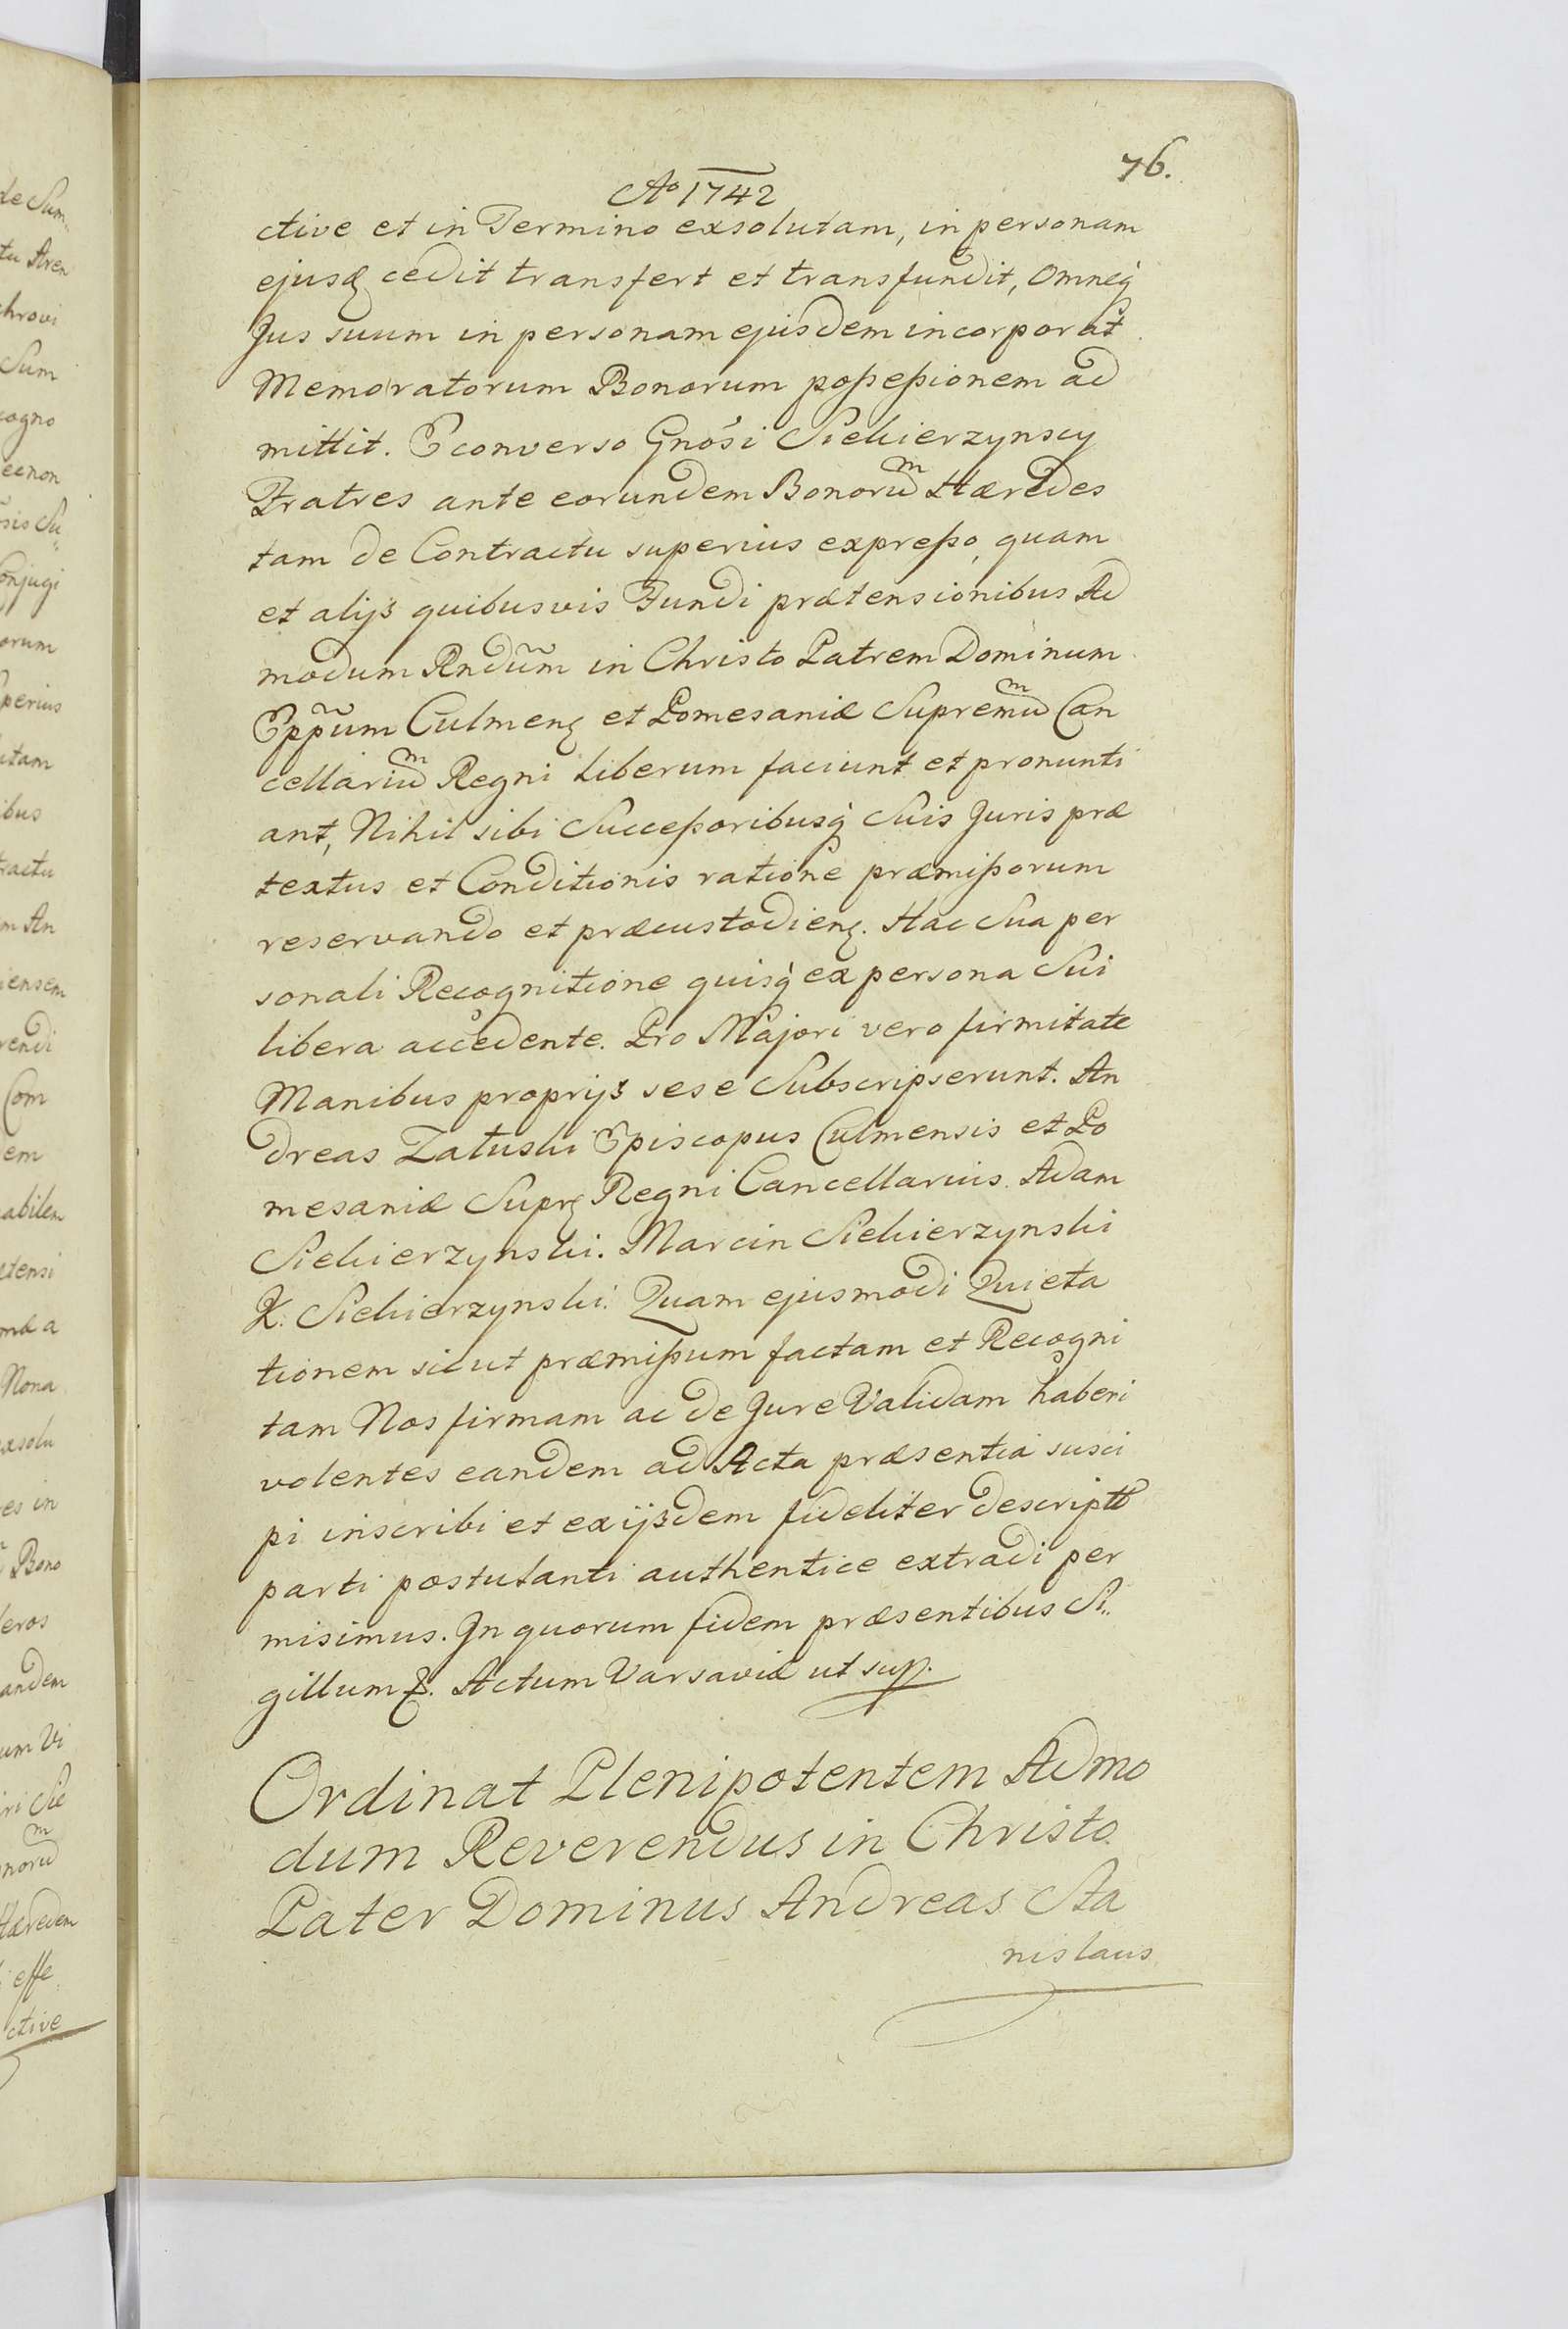 76.
Ao 1742
ctive et in Termino exsolutam, in personam
ejusq cedit transfert et transfundit, omneq
Jus suum in personam ejusdem incorporat
Memoratorum Bonorum possessionem ad
mittit. Econverso Gnosi Siekierzynscy
Fratres ante eorundem Bonorum Hæredes
tam de Contractu superius expresso, quam
et alijs quibusvis Fundi prætensionibus Ad
modum Rndum in Christo Patrem Dominum
Eppum Culmen et Pomesaniæ Supremum Can
cellarium Regni liberum faciunt et pronunti
ant, Nihil sibi Successoribusq Suis Juris præ
textus et Conditionis ratione præmissorum
reservando et præcustodien. Hac Sua per
sonali Recognitione quisq ex persona Sui
libera accedente. Pro Majori vero firmitate
Manibus proprijs sese Subscripserunt. An
dreas Załuski Episcopus Culmensis et Po
mesaniæ Supr Regni Cancellarius. Adam
Siekierzynski. Marcin Siekierzynski
K. Siekierzynski. Quam ejusmodi Quieta
tionem sicut præmissum factam et Recogni
tam Nos firmam ac de Jure Validam haberi
volentes eandem ad Acta præsentia susci
pi inscribi et ex ijsdem fideliter descript
parti postulanti authentice extradi per
misimus. In quorum fidem præsentibus Si„
gillum &. Actum Varsaviæ ut sup.
Ordinat Plenipotentem Admo
dum Reverendus in Christo
Pater Dominus Andreas Sta
nislaus